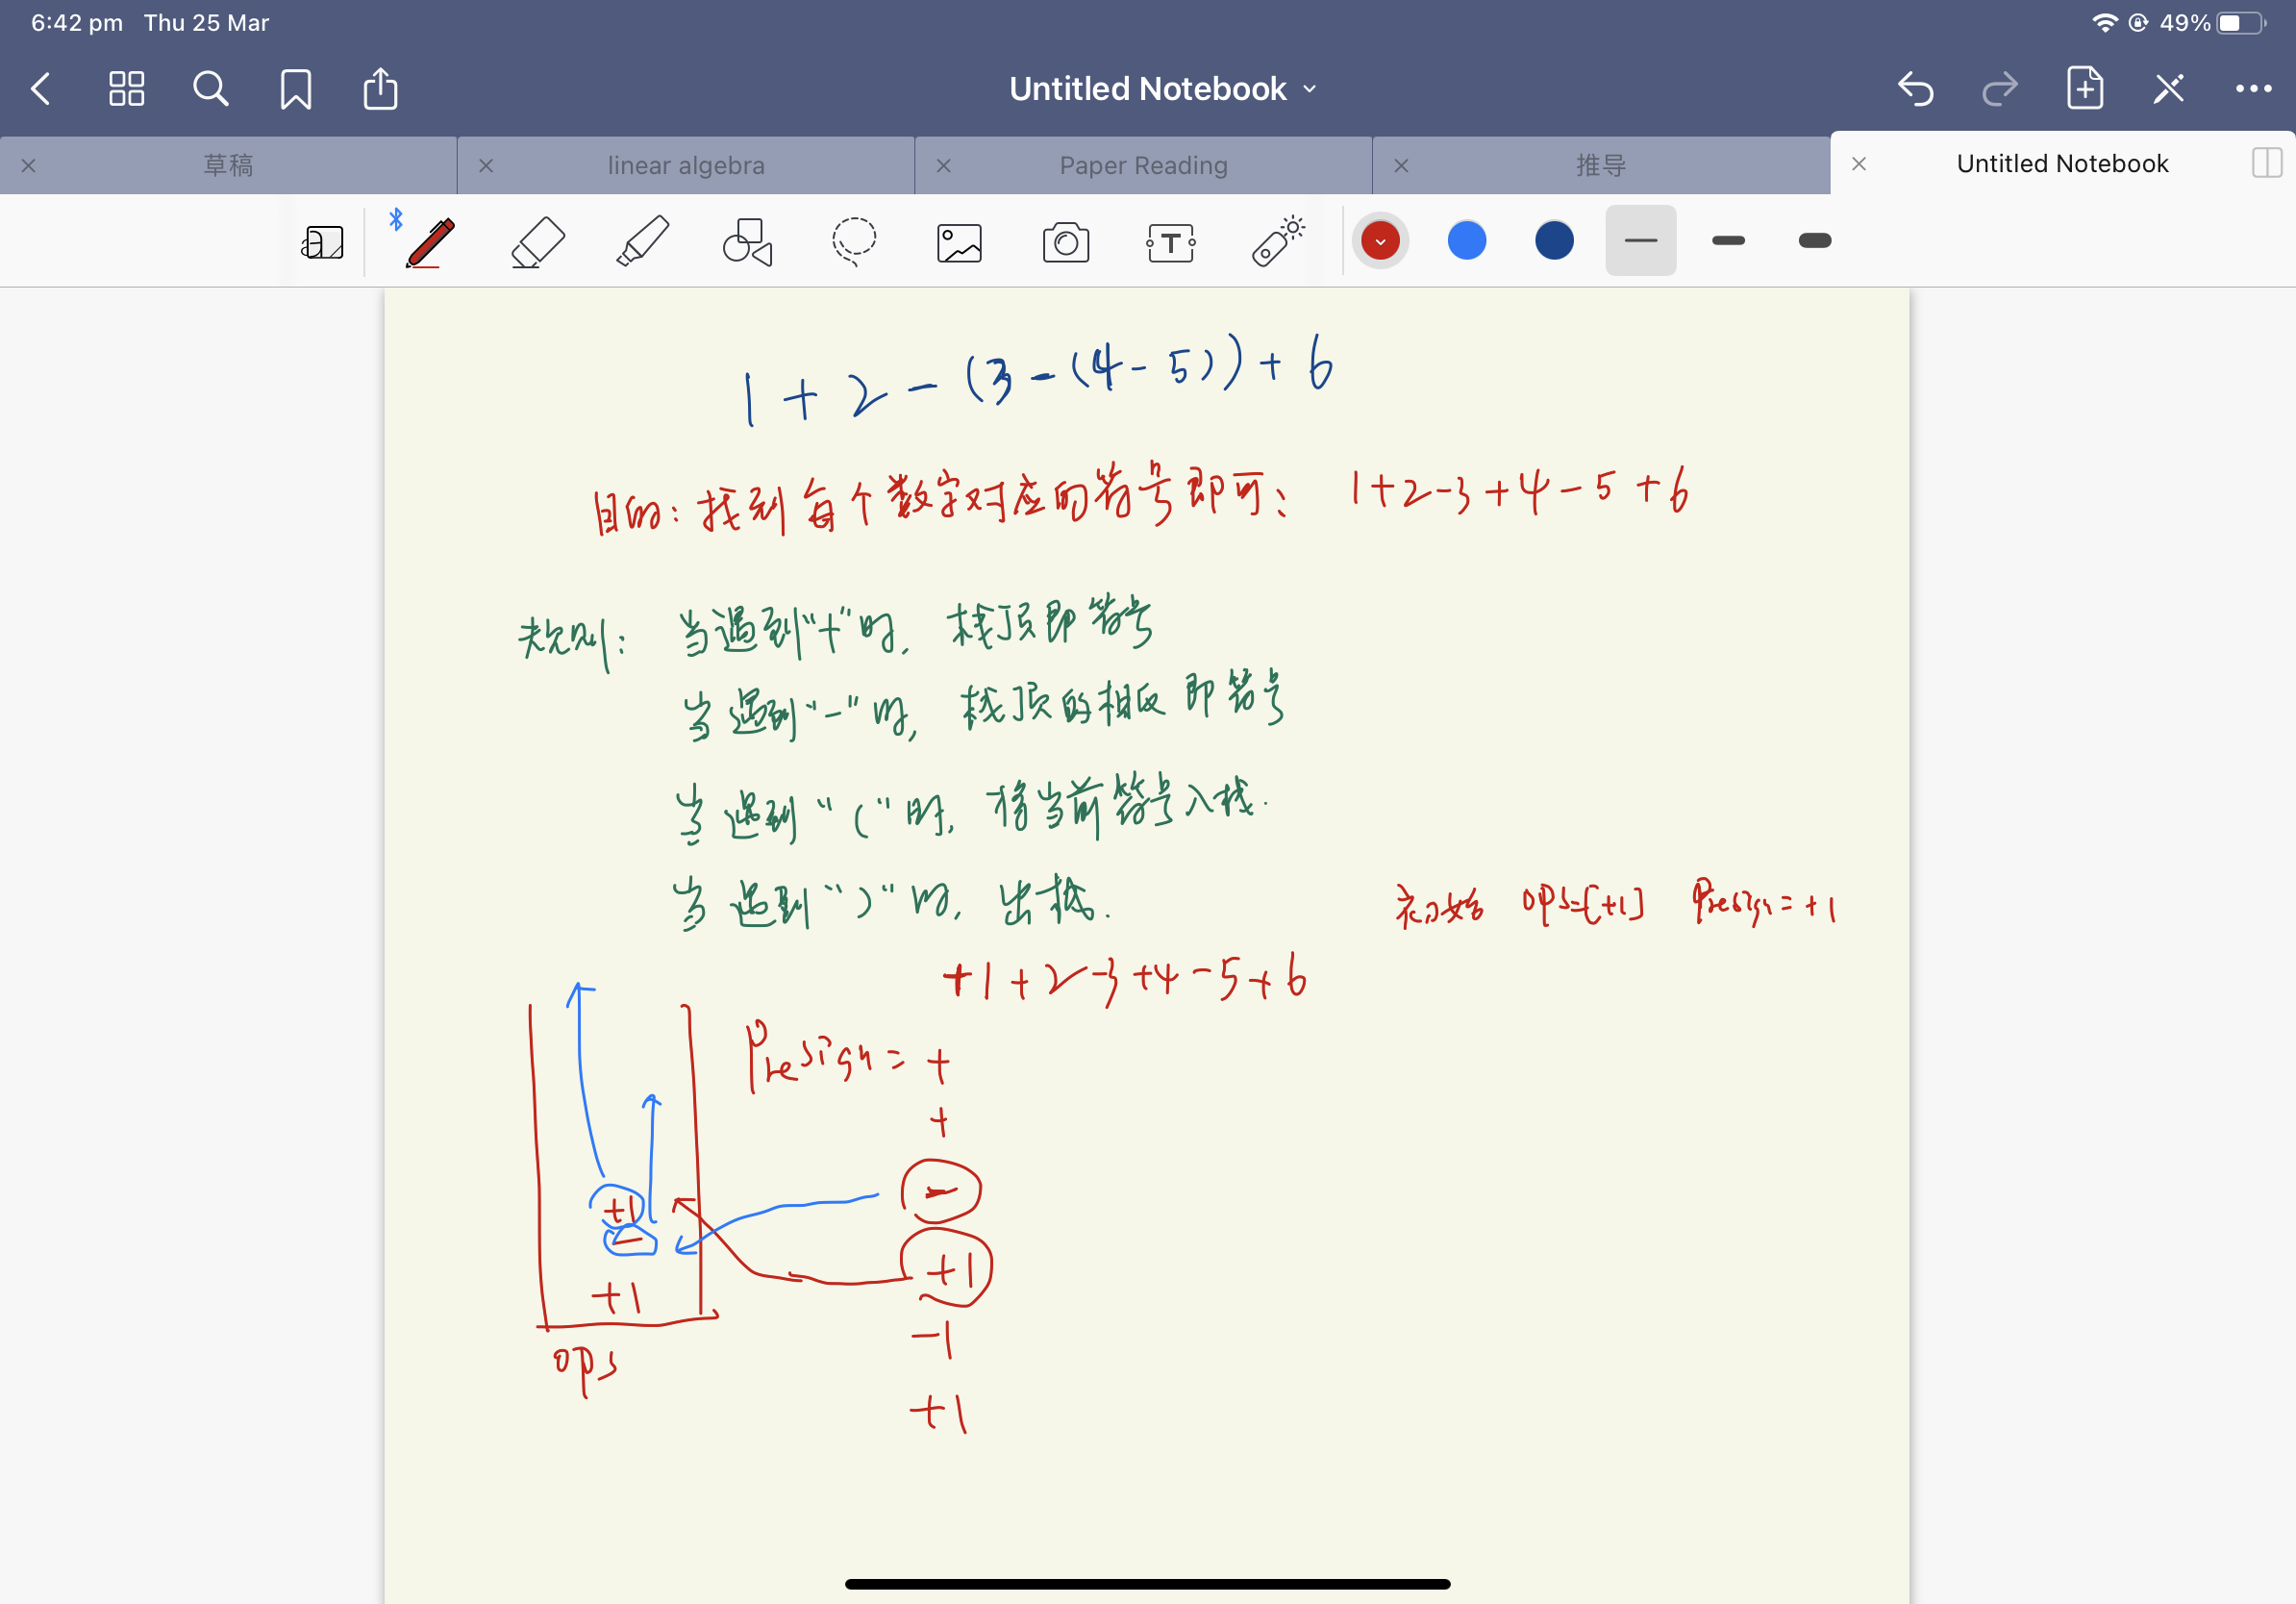 6:42 pm Thu 25 Mar 49%
Untitled Notebook
草稿 linear algebra Paper Reading 推导 Untitled Notebook
1 + 2 - (3 - (4 - 5)) + 6
目的: 找到每个数字对应的符号即可; 1+2-3+4-5+6
规则: 当遇到"+"时, 栈顶即符号
当遇到"-"时, 栈顶的相反即符号
当遇到"("时, 将当前符号入栈.
当遇到")"时, 出栈.
初始 ops=[+1] Presign = +1
+1+2-3+4-5+6
Presign = +
+
-
+1
-1
+1
+1
-
+1
ops